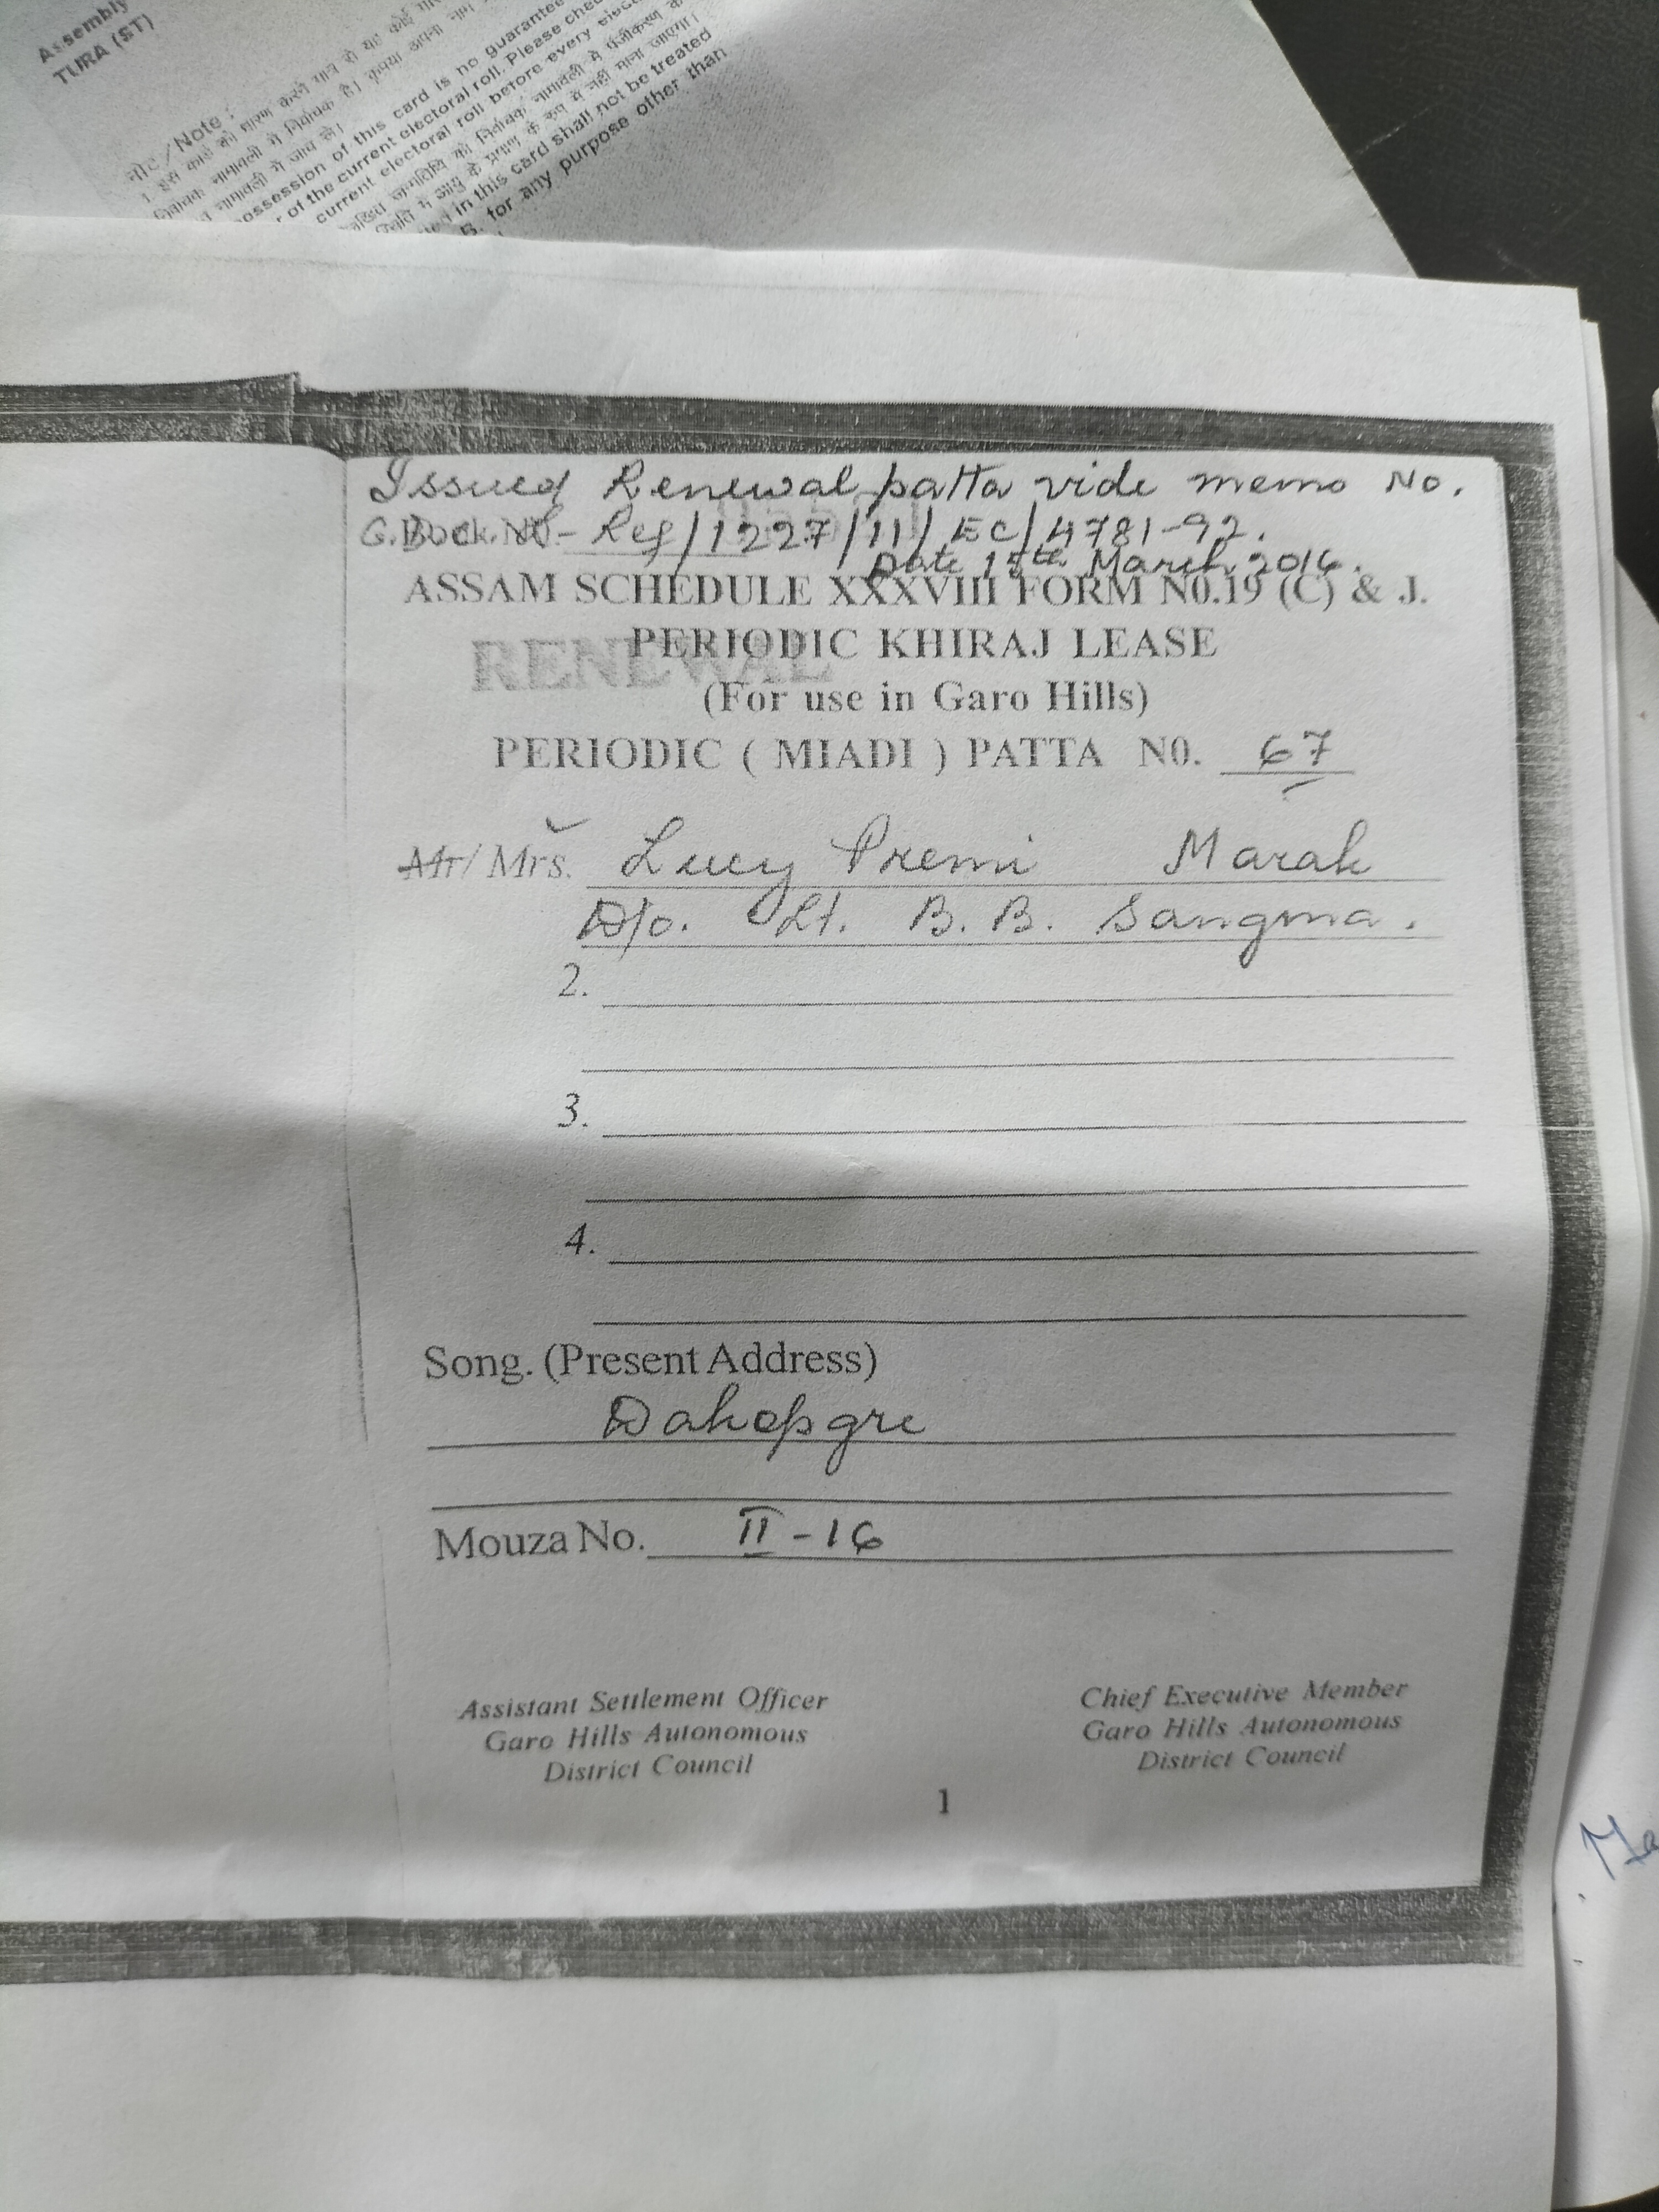 Assembly
TURA (ST)
नोट / Note :
1. इस कार्ड को धारण करने मात्र से यह कोई
निर्वाचक नामावली में निर्वाचक है। कृपया अपना नाम
नामावली में जांच लें।
possession of this card is no guarantee
of the current electoral roll. Please
current electoral roll before every
जन्मतिथि को निर्वाचक नामावली में पंजीकरण के
में आयु के प्रमाण के रूप में नहीं माना जाएगा।
in this card shall not be treated
for any purpose other than
Issued Renewal patta vide memo No.
Reg/1227/11/EC/4781-92.
Date 15th March 2016.
ASSAM SCHEDULE XXXVIII FORM N0.19 (C) & J.
RENEWAL
PERIODIC KHIRAJ LEASE
(For use in Garo Hills)
PERIODIC ( MIADI ) PATTA N0. 67
Mr/ Mrs. Lucy Premi Marak
D/o. Lt. B. B. Sangma.
2.
3.
4.
Song. (Present Address)
Dakopgre
Mouza No. II - 16
Assistant Settlement Officer
Garo Hills Autonomous
District Council
Chief Executive Member
Garo Hills Autonomous
District Council
1